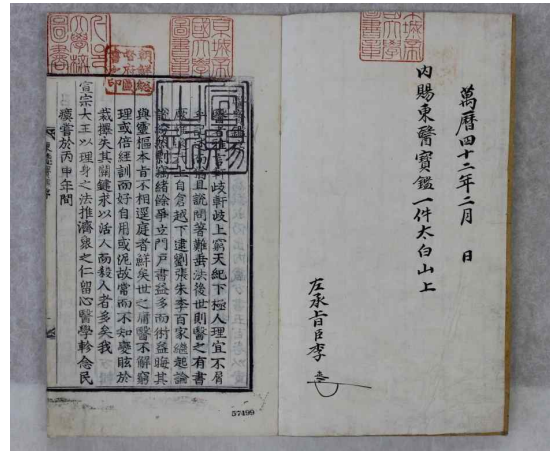 萬曆四十二年二月 日
內賜東醫寶鑑一件太白山上
左承旨臣李
京城帝國大學圖書章
軒岐軒岐上窮天紀下極人理宜不屑
而猶且說問著難垂法後世則醫之有書
上自倉越下逮劉張朱李百家繼起論
說紛然剽竊緖餘爭立門戶書益多而術益晦其
與靈樞本旨不相逕庭者鮮矣世之庸醫不解窮
理或倍經訓而好自用或泥故常而不知變眩於
裁擇失其關鍵求以活人而殺人者多矣我
宣宗大王以理身之法推濟衆之仁留心醫學軫念民
瘼嘗於丙申年間
57499